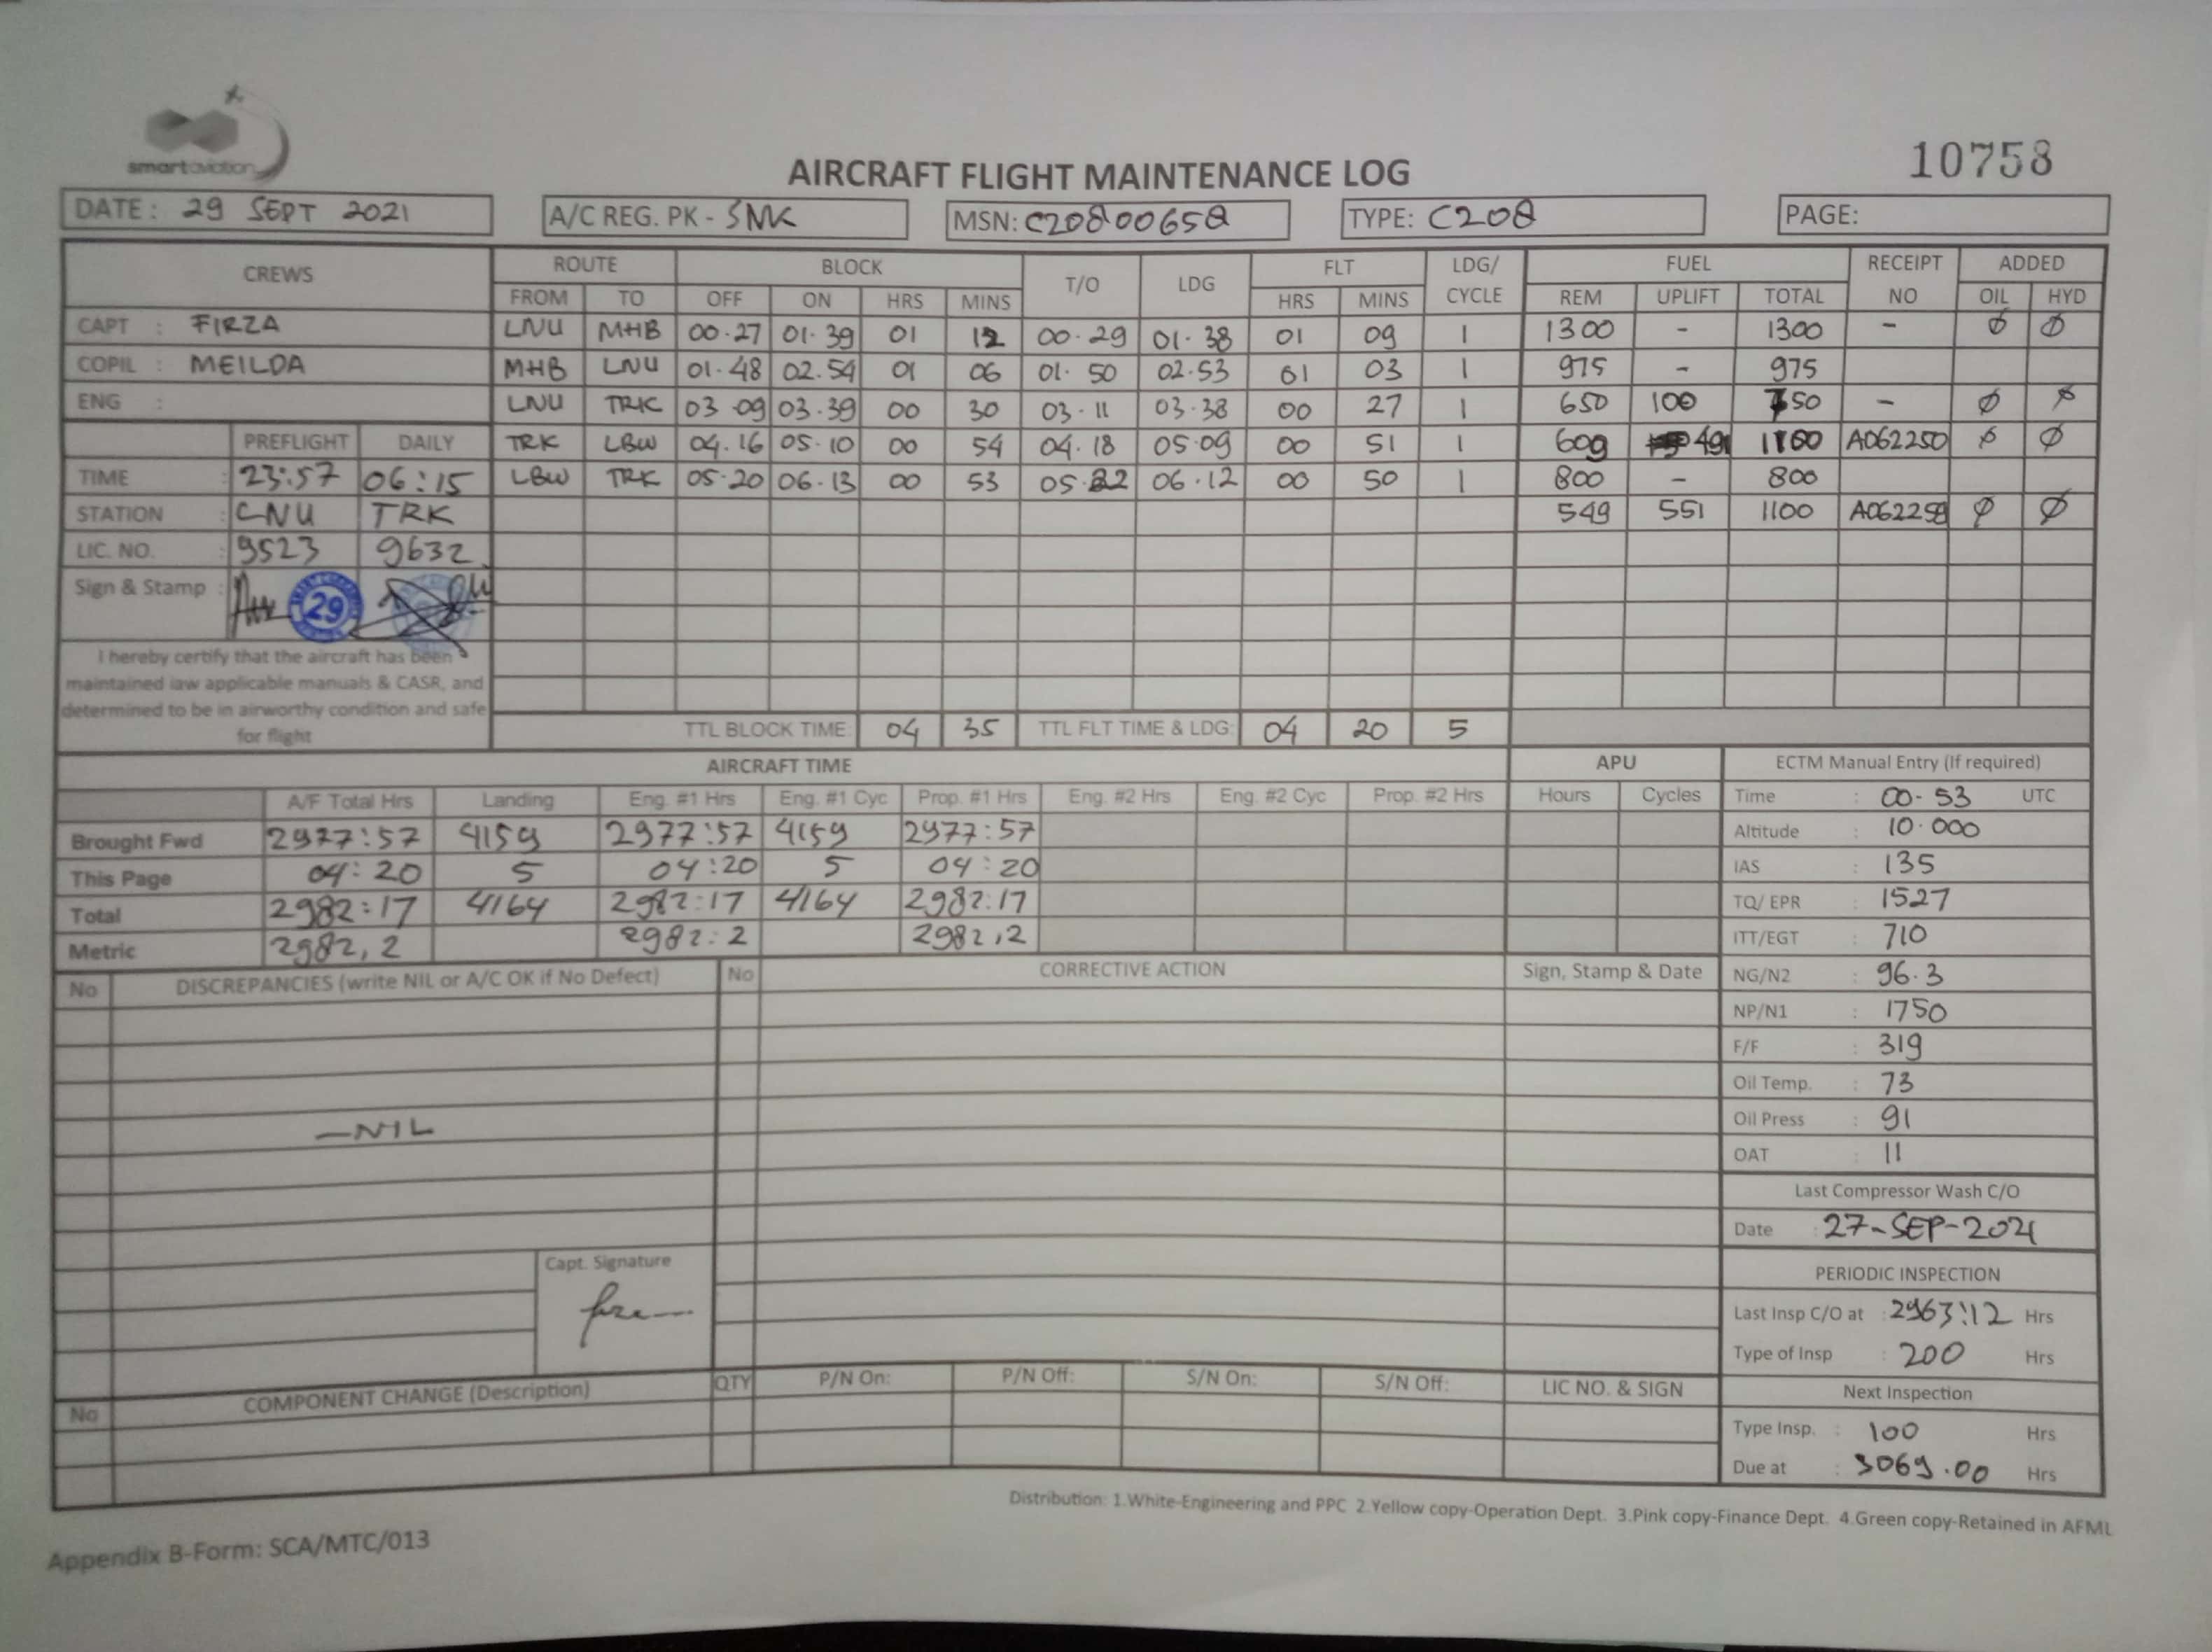 smartaviation
10758
AIRCRAFT FLIGHT MAINTENANCE LOG
DATE: 29 SEPT 2021 A/C REG. PK - SNK MSN: C20800658 TYPE: C208 PAGE:
CREWS ROUTE BLOCK T/O LDG FLT LDG/ CYCLE FUEL RECEIPT NO ADDED
FROM TO OFF ON HRS MINS HRS MINS REM UPLIFT TOTAL OIL HYD
CAPT : FIRZA LNU MHB 00.27 01.39 01 12 00.29 01.38 01 09 1 1300 - 1300 - Ø Ø
COPIL : MEILDA MHB LNU 01.48 02.54 01 06 01.50 02.53 01 03 1 975 - 975
ENG : LNU TRK 03.09 03.39 00 30 03.11 03.38 00 27 1 650 100 750 - Ø Ø
PREFLIGHT DAILY TRK LBW 04.16 05.10 00 54 04.18 05.09 00 51 1 609 491 1100 A062250 Ø Ø
TIME : 23:57 06:15 LBW TRK 05.20 06.13 00 53 05.22 06.12 00 50 1 800 - 800
STATION : LNU TRK 549 551 1100 A062259 Ø Ø
LIC. NO. : 9523 9632
Sign & Stamp : 29
I hereby certify that the aircraft has been
maintained iaw applicable manuals & CASR, and
determined to be in airworthy condition and safe
for flight
TTL BLOCK TIME: 04 35 TTL FLT TIME & LDG: 04 20 5
AIRCRAFT TIME APU ECTM Manual Entry (If required)
A/F Total Hrs Landing Eng. #1 Hrs Eng. #1 Cyc Prop. #1 Hrs Eng. #2 Hrs Eng. #2 Cyc Prop. #2 Hrs Hours Cycles Time : 00-53 UTC
Brought Fwd 2977:57 4159 2977:57 4159 2977:57 Altitude : 10.000
This Page 04:20 5 04:20 5 04:20 IAS : 135
Total 2982:17 4164 2982:17 4164 2982:17 TQ/ EPR : 1527
Metric 2982,2 2982:2 2982,2 ITT/EGT : 710
No DISCREPANCIES (write NIL or A/C OK if No Defect) No CORRECTIVE ACTION Sign, Stamp & Date NG/N2 : 96.3
NP/N1 : 1750
F/F : 319
Oil Temp. : 73
—NIL Oil Press : 91
OAT : 11
Last Compressor Wash C/O
Date : 27-SEP-2021
Capt. Signature
PERIODIC INSPECTION
Last Insp C/O at : 2963:12 Hrs
Type of Insp : 200 Hrs
No COMPONENT CHANGE (Description) QTY P/N On: P/N Off: S/N On: S/N Off: LIC NO. & SIGN Next Inspection
Type Insp. : 100 Hrs
Due at : 3069.00 Hrs
Distribution: 1.White-Engineering and PPC 2.Yellow copy-Operation Dept. 3.Pink copy-Finance Dept. 4.Green copy-Retained in AFML
Appendix B-Form: SCA/MTC/013